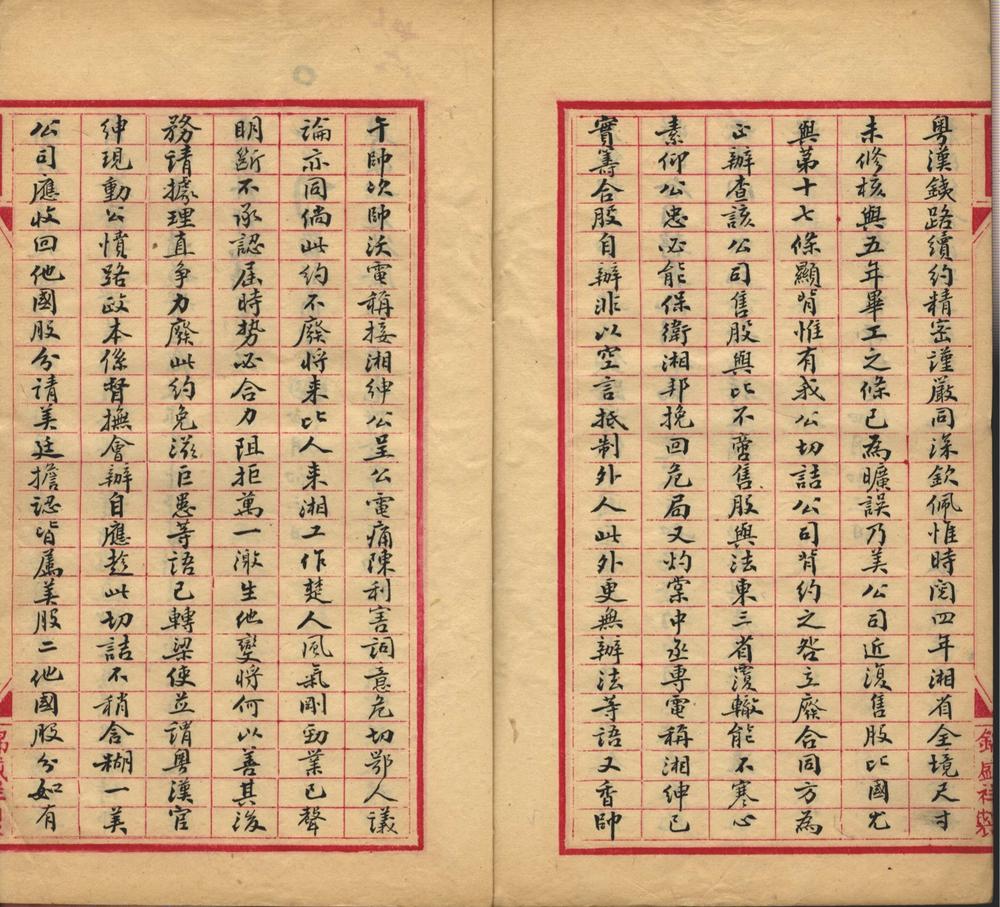 粵漢鐵路續約精密謹嚴同深欽佩惟時閱四年湘省全境尺寸
未修核與五年畢工之條已為曠誤乃美公司近復售股比國尤
與第十七條顯背惟有我公切詰公司背約之咎立廢合同方為
正辦查該公司售股與比不啻售股與法東三省覆轍能不寒心
素仰公忠必能保衛湘邦挽回危局又灼棠中丞專電稱湘紳已
實籌合股自辦非以空言抵制外人此外更無辦法等語又香帥
午帥次帥沃電稱接湘紳公呈公電痛陳利害詞意危切鄂人議
論亦同倘此約不廢將來比人來湘工作楚人風氣剛勁業已聲
明斷不承認屆時勢必合力阻拒萬一激生他變將何以善其後
務請據理直爭力廢此約免滋巨患等語已轉梁使並謂粵漢官
紳現動公憤路政本係督撫會辦自應趁此切詰不稍含糊一美
公司應收回他國股分請美廷擔認皆屬美股二他國股分如有